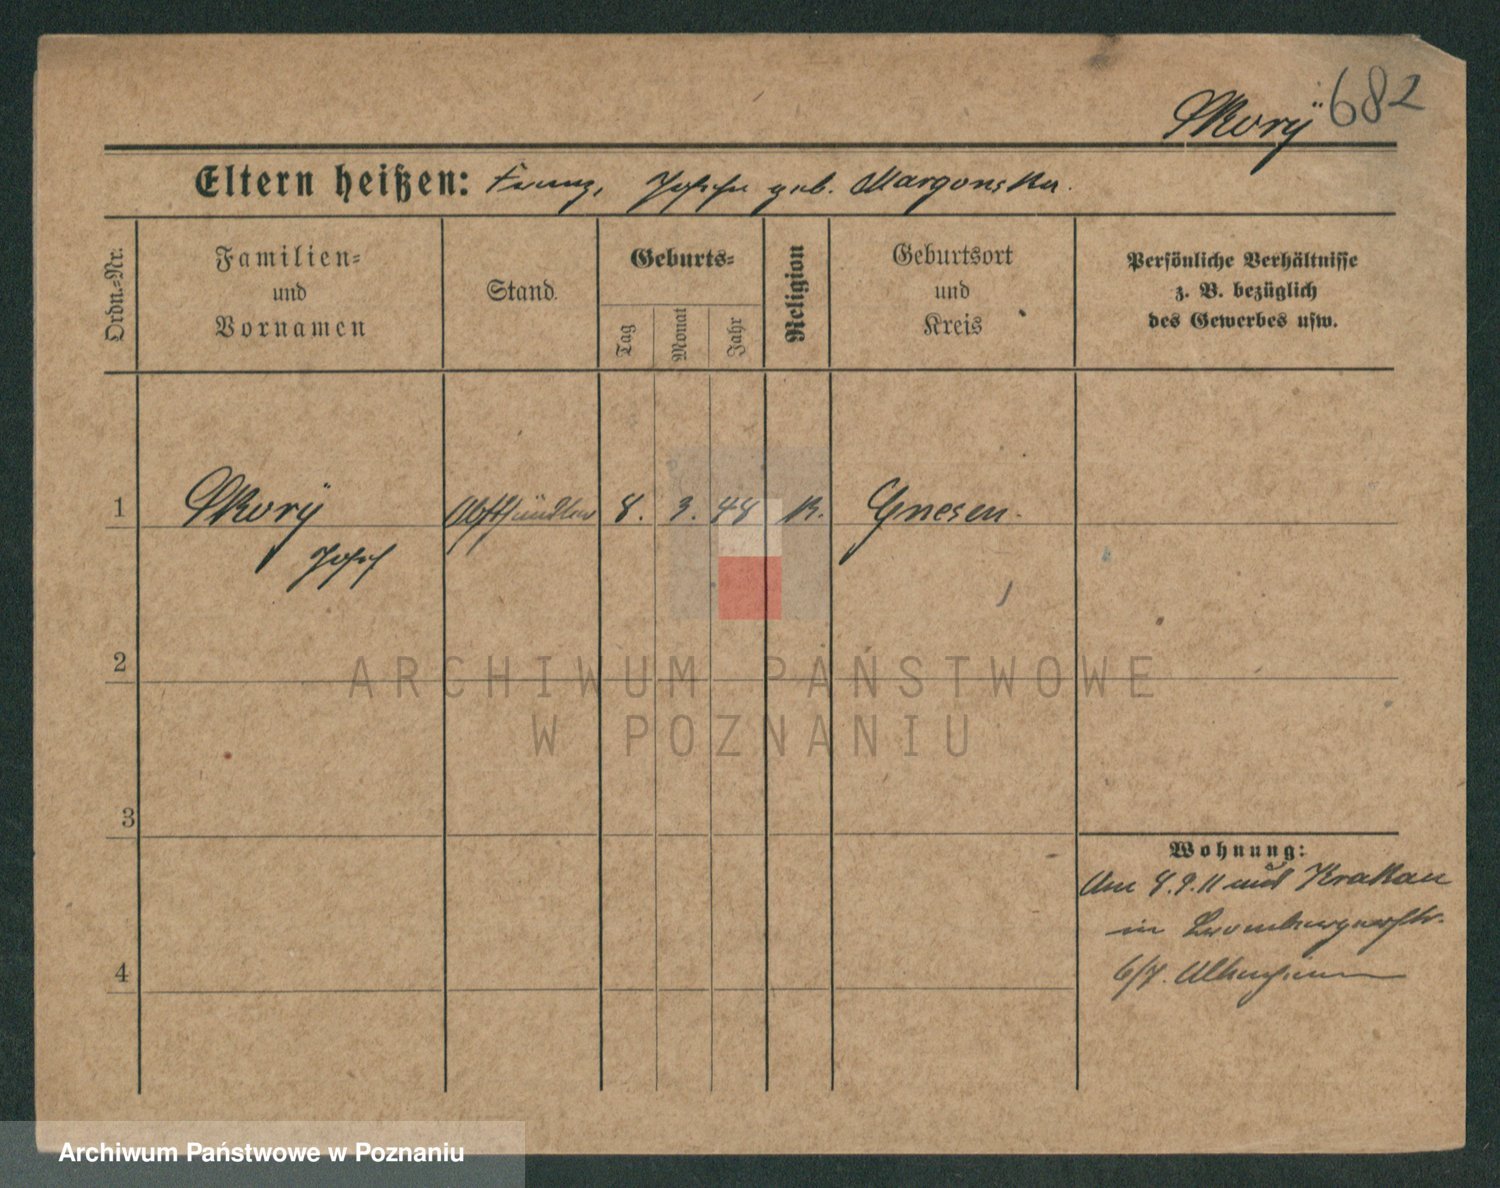 682
Skorÿ
Eltern heißen: Franz, Josefa geb. Margonska.
Ordn.-Nr.
Familien-
und
Vornamen
Stand.
Geburts-
Tag
Monat
Jahr
Religion
Geburtsort
und
Kreis
Persönliche Verhältnisse
z. B. bezüglich
des Gewerbes usw.
1
Skorÿ
Josef
Obsthändler
8. 3. 48
K.
Gnesen.
2
3
4
Wohnung:
Am 9.11 aus Krakau
in Brombergerstr.
6/7.
ARCHIWUM PAŃSTWOWE
W POZNANIU
Archiwum Państwowe w Poznaniu